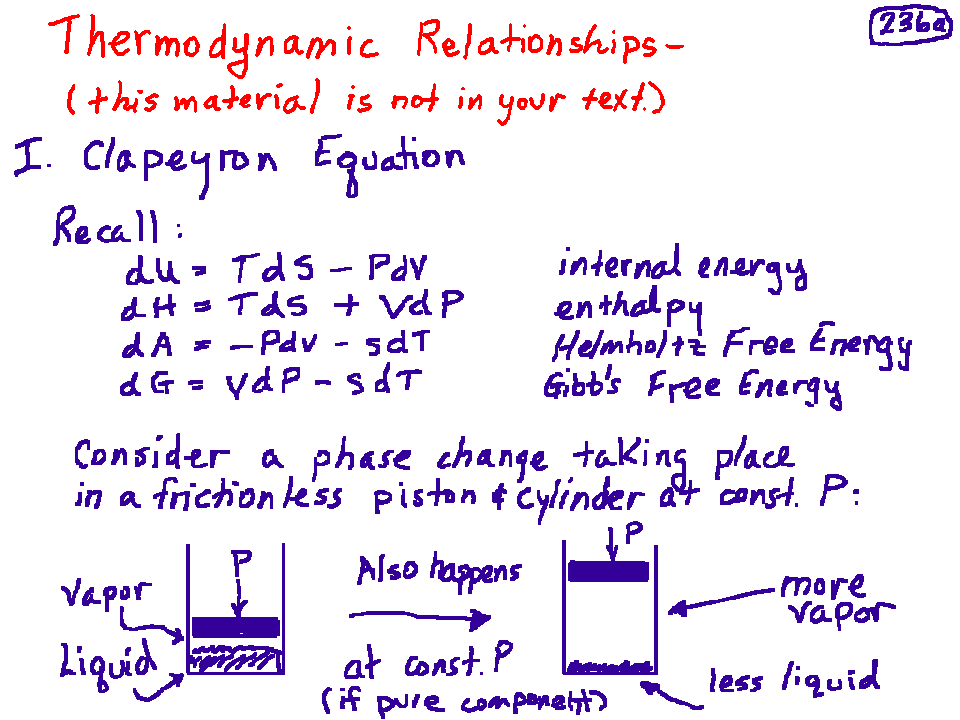 236a
Thermodynamic Relationships-
(this material is not in your text.)
I. Clapeyron Equation
Recall:
dU = TdS - PdV internal energy
dH = TdS + VdP enthalpy
dA = -Pdv - sdT Helmholtz Free Energy
dG = VdP - SdT Gibb's Free Energy
Consider a phase change taking place
in a frictionless piston & cylinder at const. P:
P
Also happens
P
vapor
more
vapor
Liquid
at const. P
less liquid
(if pure component)